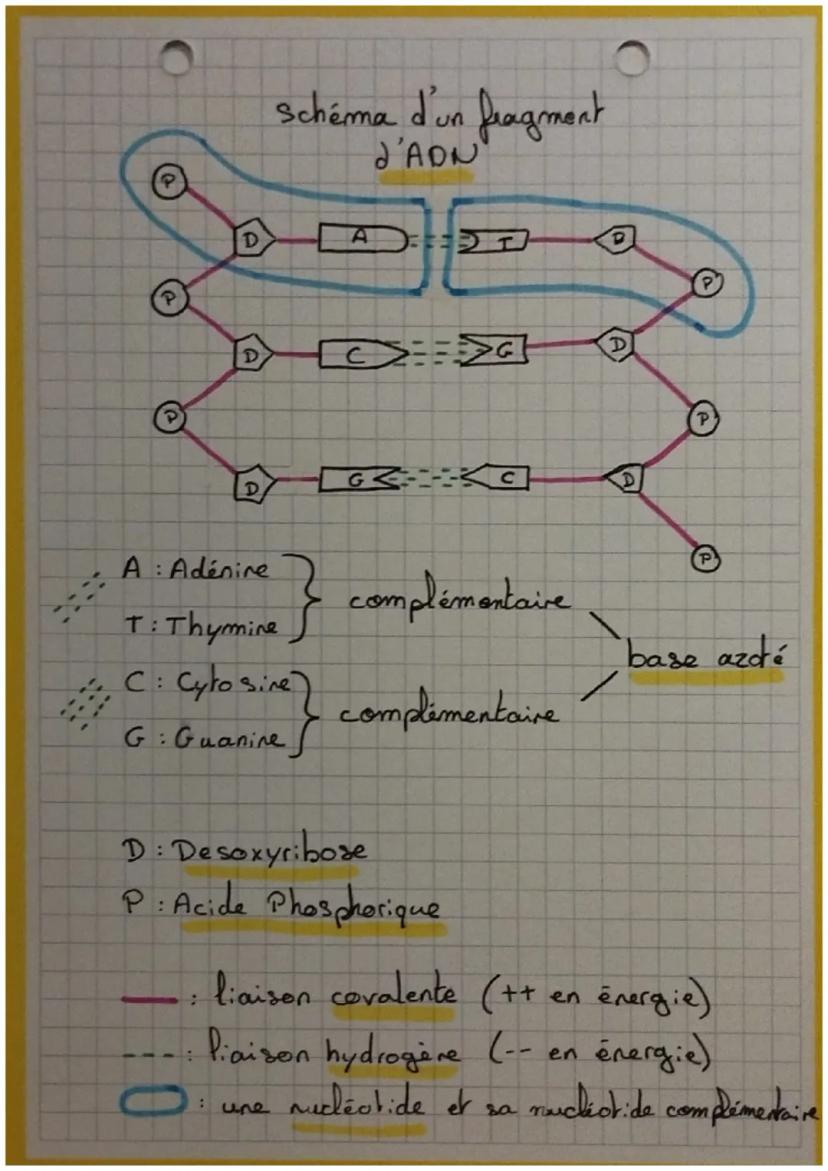 schéma d'un fragment
d'ADN
P
D A T D
P P
D C G D
P P
D G C D
P
A : Adénine
complémentaire
T : Thymine
base azoté
C : Cytosine
complémentaire
G : Guanine
D : Desoxyribose
P : Acide Phosphorique
: liaison covalente (++ en énergie)
: liaison hydrogène (-- en énergie)
: une nucléotide et sa nucléotide complémentaire